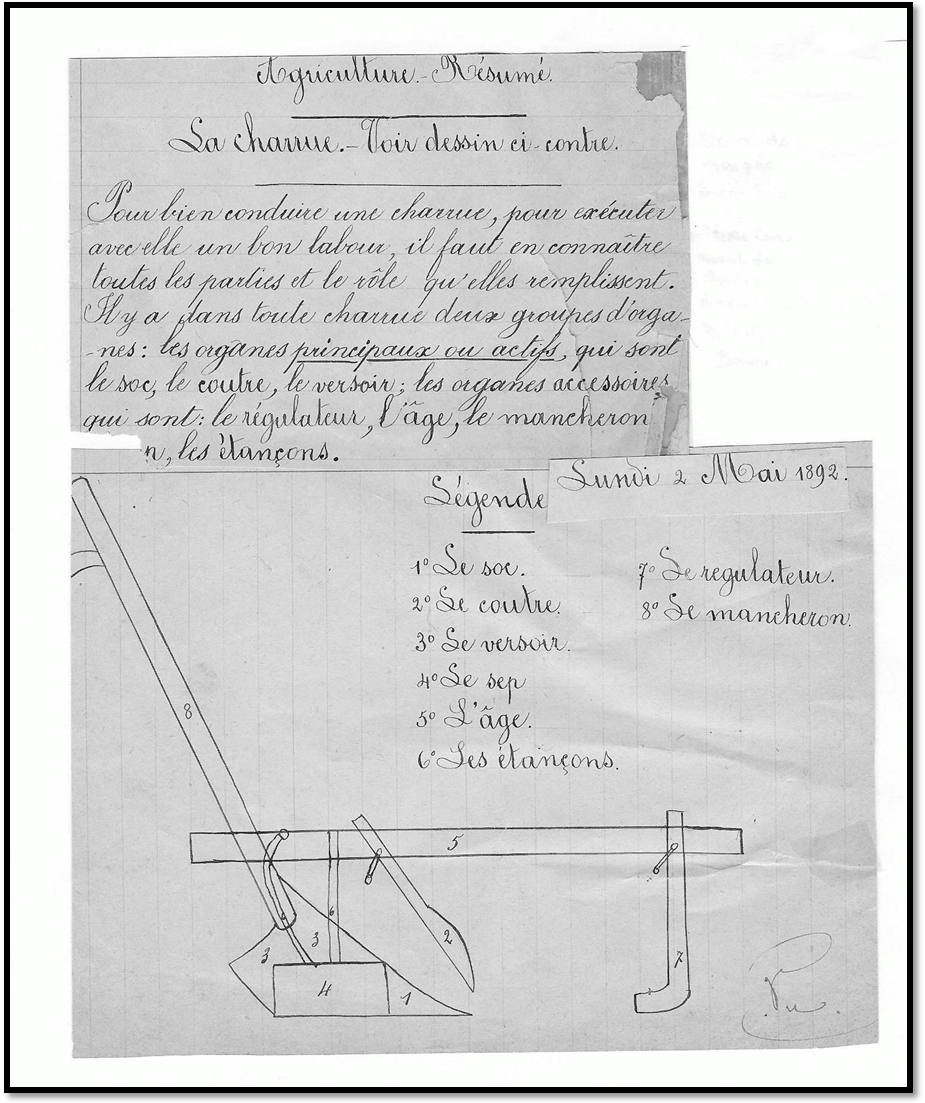 Agriculture.- Résumé.
La charrue.- Voir dessin ci-contre.
Pour bien conduire une charrue, pour exécuter
avec elle un bon labour, il faut en connaître
toutes les parties et le rôle qu'elles remplissent.
Il y a dans toute charrue deux groupes d'orga-
-nes: les organes principaux ou actifs, qui sont
le soc, le coutre, le versoir; les organes accessoires,
qui sont: le régulateur, l'âge, le mancheron
n, les étançons.
Lundi 2 Mai 1892.
Légende
1° Le soc.
2° Le coutre.
3° Le versoir.
4° Le sep
5° L'âge.
6° Les étançons.
7° Le regulateur.
8° Le mancheron.
8
5
6
3
3
2
4
1
7
Vu